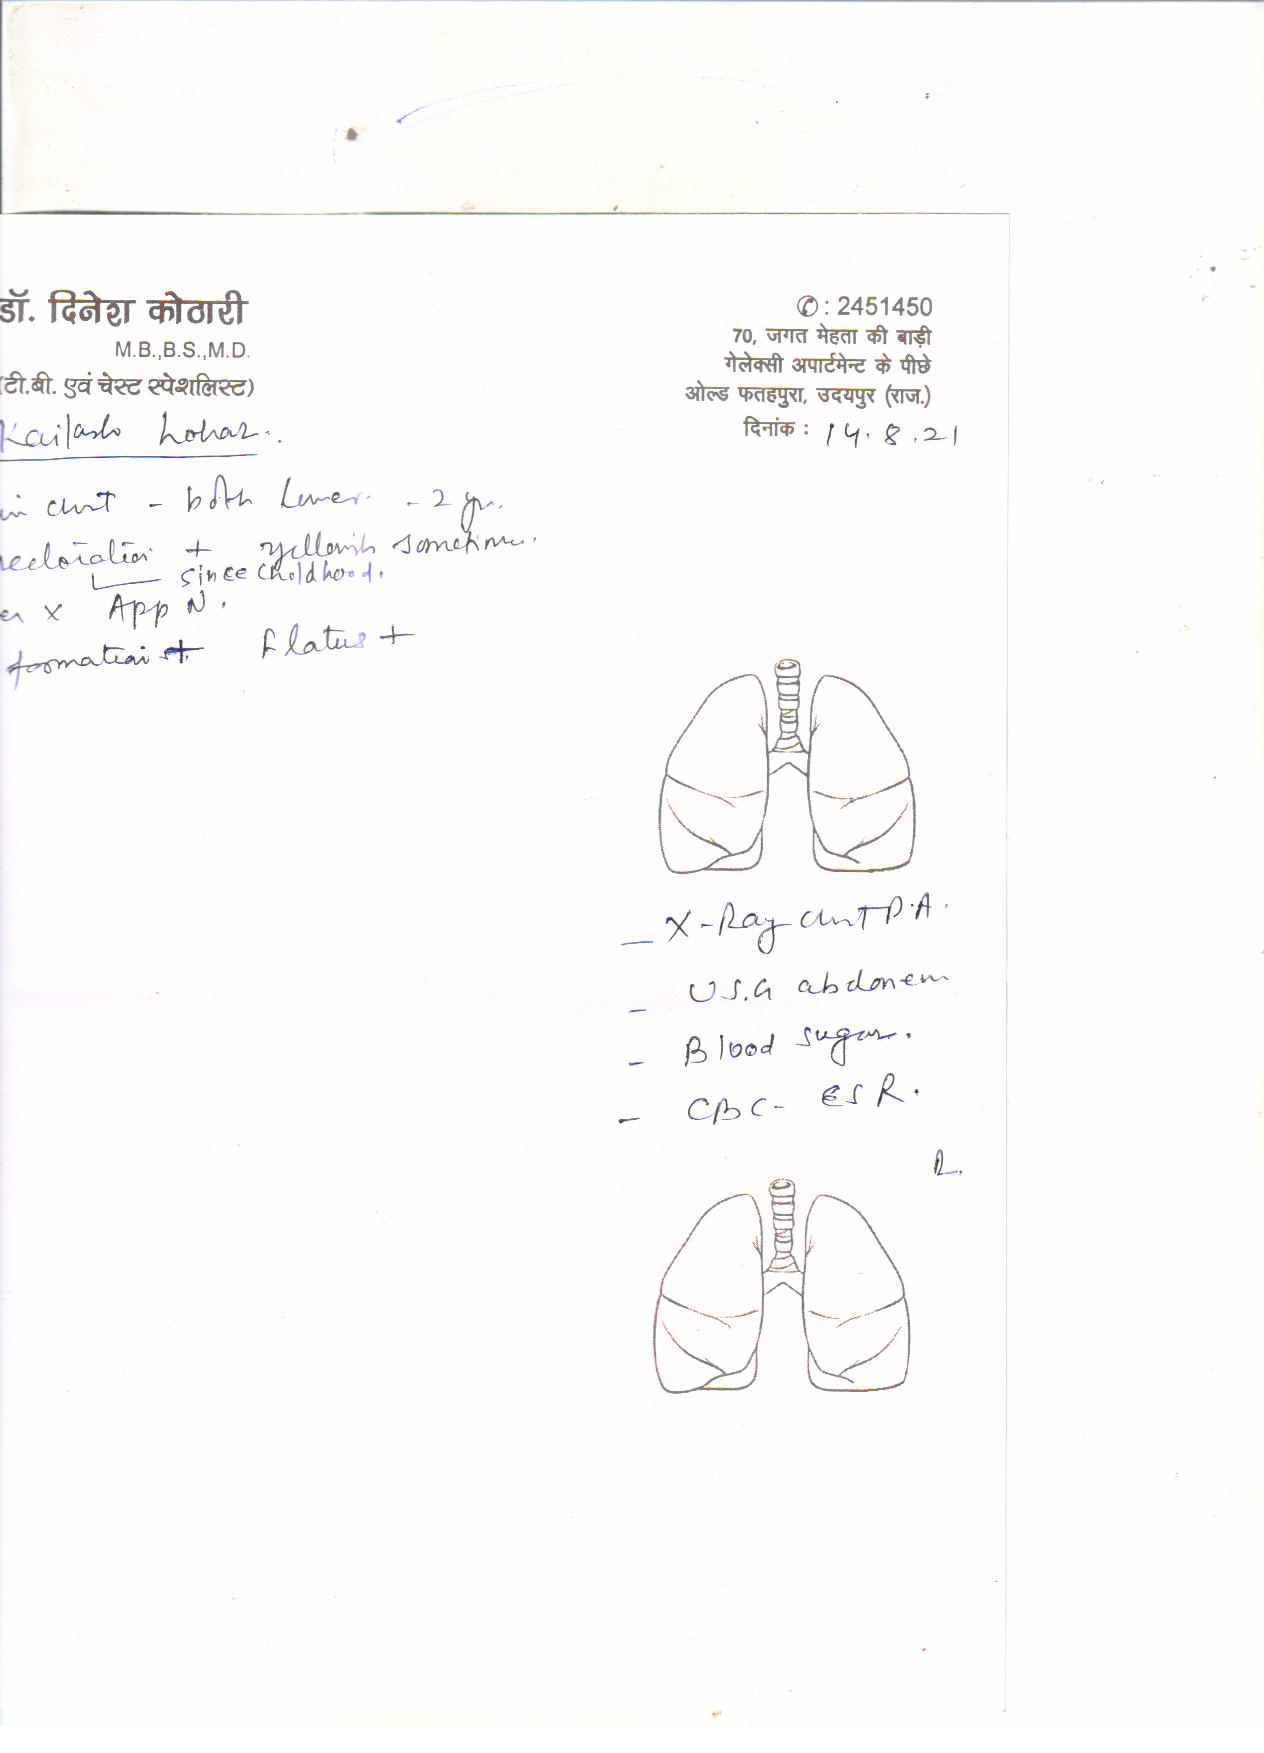 डॉ. दिनेश कोठारी
M.B.,B.S.,M.D.
(टी.बी. एवं चेस्ट स्पेशलिस्ट)
✆ : 2451450
70, जगत मेहता की बाड़ी
गेलेक्सी अपार्टमेन्ट के पीछे
ओल्ड फतहपुरा, उदयपुर (राज.)
दिनांक : 14.8.21
Kailash Lohar.
in chest - both Lower. - 2 yr.
+ yellowish sometime.
since childhood.
er x App N.
formation + Flatus +
- X-Ray chest P.A.
- U.S.G abdomen
- Blood sugar.
- CBC - ESR.